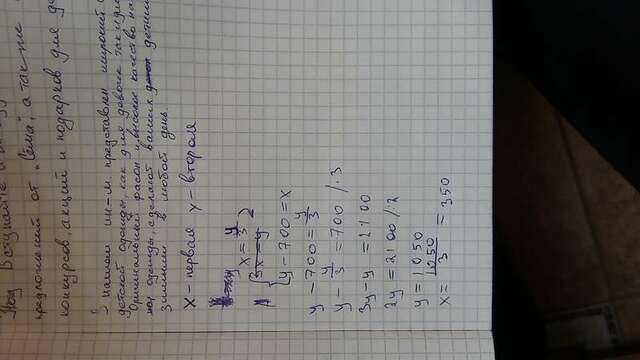 Вступайте и
предложений от "Сёма", а так же
конкурсов, акций и подарков для
В нашем ин-м. представлен широкий
детской одежды, как для девочек так и
Оригинальный фасон и высокое качество
одежды, сделают ваших детишек
зимними в любой день.
x - первая y - вторая
x = y/3
3x = y
y - 700 = x
y - 700 = y/3
y - y/3 = 700 /·3
3y - y = 2100
2y = 2100 /:2
y = 1050
x = 1050/3 = 350